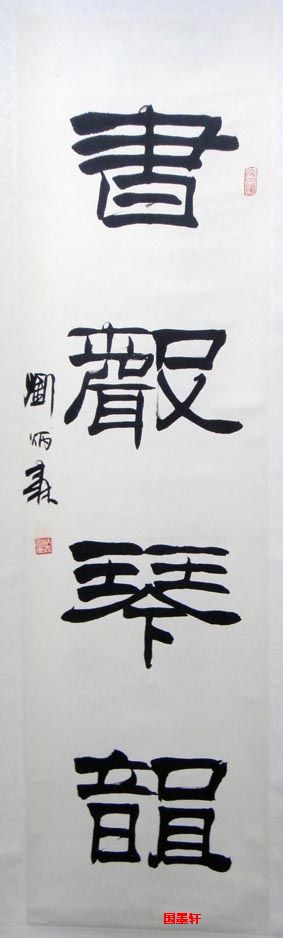 書聲琴韻
劉炳森
国墨轩